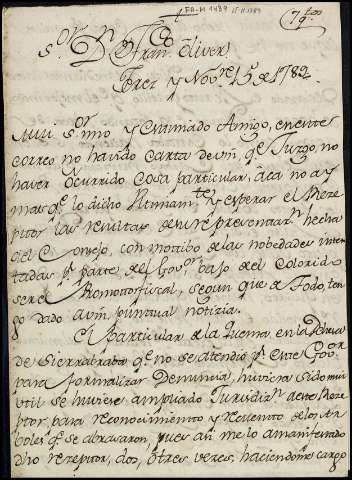 FA-M 1439 15 11 1782
S.or D.n Fran.co Oliver
y Nov.re 15 de 1782
Mui S.or mio y Estimado Amigo, en este
correo no havido carta de vm q.e Juzgo, no
haver ocurrido cosa particular, aca no ay
mas q.e lo dicho Ultimam.te y esperar el Rece
ptor las resultas de su representaz.n hecha
al Consejo, con mottibo de las nobedades inten
tadas p.r parte del Gov.or bajo del Colorido
ser el Promottofiscal, segun que de todo, ten
go dado a vm puntual notizia.
El particular de la Quema, en la Dehesa
de q.e no se atendio p.r este Gov.or
para formalizar Denuncia, huviera sido mui
util se huviese ampliado Jurisdiz.n a este Rece
ptor, para reconocimiento y Recuento de los Ar
boles q.e se abrasaron, pues asi me lo a manifestado
dho rezeptor, dos, o tres veces, haciendome cargo